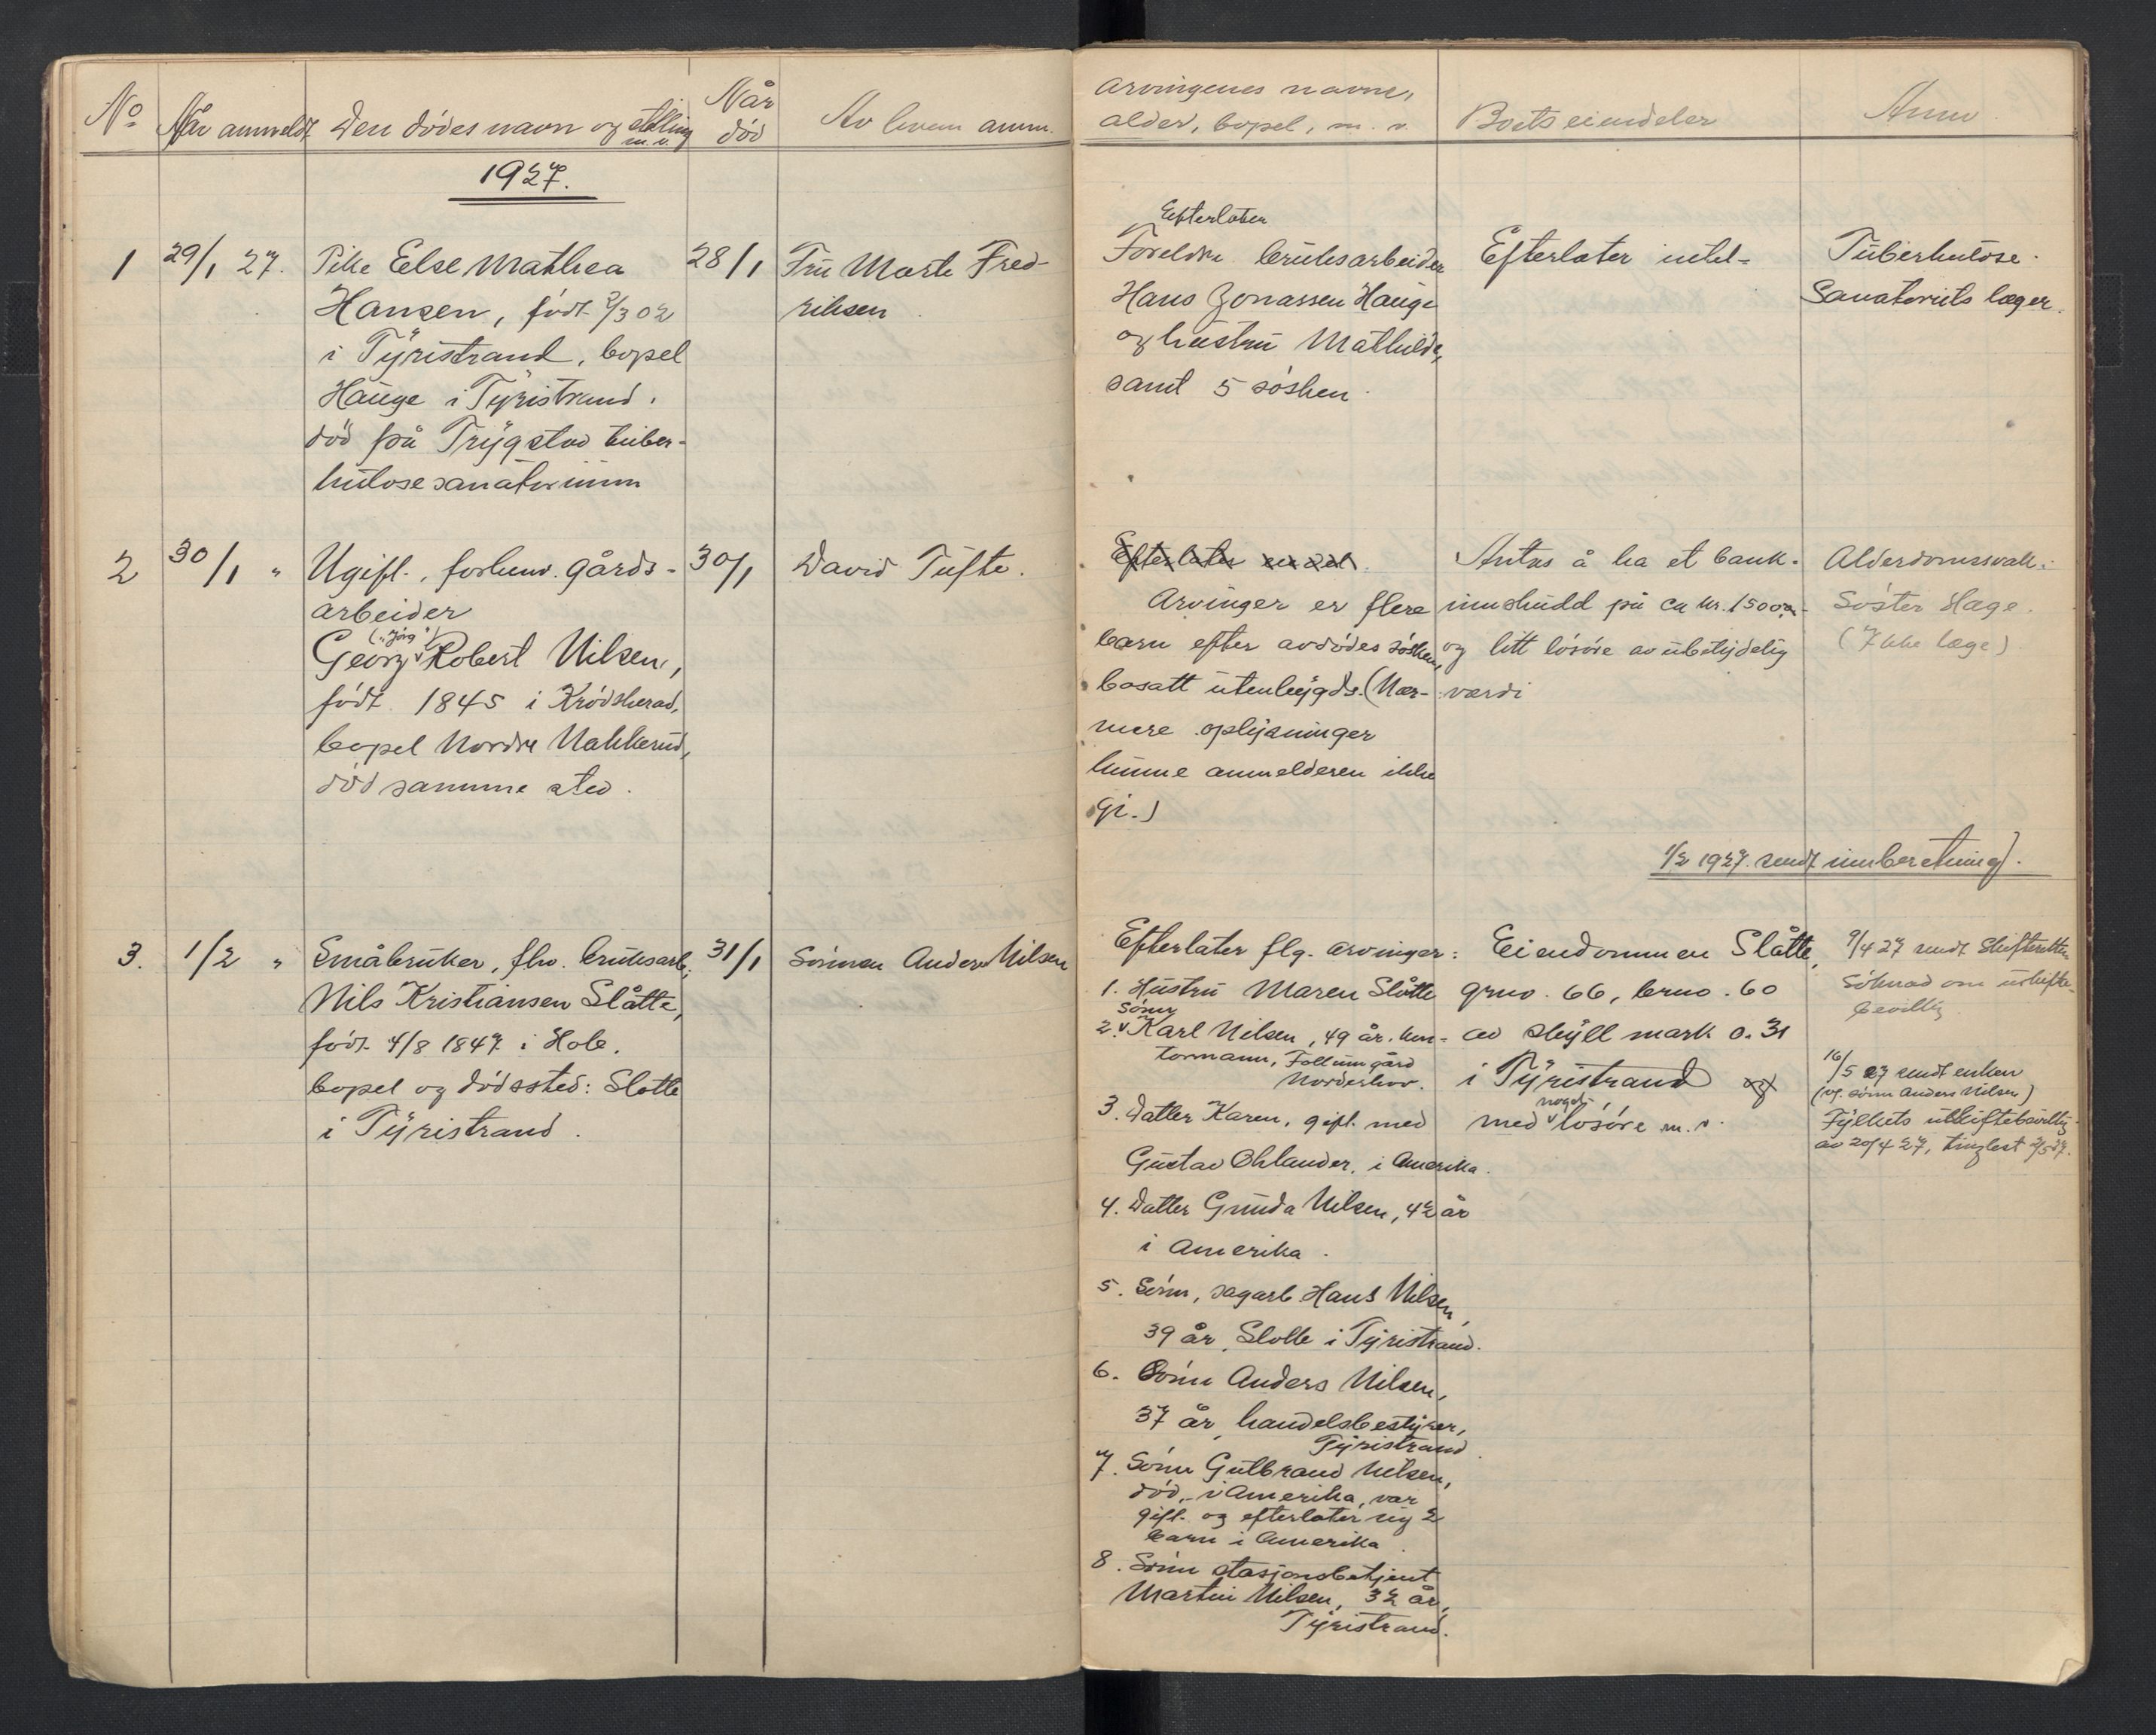 No
Når anmeldt
Den dödes navn og stilling m. v.
Når död
Av hvem anm.
Arvingenes navne, alder, bopel, m. v.
Boets eiendeler
Anm
1927.
1
29/1 27.
Pike Else Mathea
Hansen, född 2/3 02
i Tyristrand, bopel
Hauge i Tyristrand.
död på Trygstad tuber-
kulosesanatorium
28/1
Fru Marte Fred-
riksen
Efterlater
Foreldre bruksarbeider
Hans Jonassen Hauge
og hustru Mathilde,
samt 5 søsken.
Efterlater intet-
Tuberkulose.
Sanatoriets læger.
2
30/1 "
Ugift., forhenv. gårds-
arbeider
("Jörg")
Georg Robert Nilsen,
födt 1845 i Krödsherad,
bopel Nordre Nakkerud,
död samme sted.
30/1
David Tufte.
Efterlater
Arvinger er flere
barn efter avdödes sösken,
bosatt utenbygds. (Nær-
mere oplysninger
kunne anmelderen ikke
gi.)
Antas å ha et bank-
innskudd på ca kr. 1500,00
og litt lösöre av ubetydelig
verdi
Alderdomssvakh.
Söster Hage.
(Ikke læge)
1/2 1927 sendt innberetning.
3.
1/2 "
Småbruker, fhv. bruksarb.
Nils Kristiansen Slåtte,
födt 4/8 1847 i Hole.
bopel og dödssted: Slåtte
i Tyristrand.
31/1
Sönnen Anders Nilsen
Efterlater flg. arvinger:
1. Hustru Maren Slåtte
Sönn
2. Karl Nilsen, 49 år, kon-
tormann, Follum gård
Norderhov.
3. Datter Karen, gift. med
Gustav Ohlander, i Amerika.
4. Datter Gunda Nilsen, 42 år
i Amerika.
5. Sönn, sagarb. Hans Nilsen,
39 år, Slåtte i Tyristrand.
6. Sönn Anders Nilsen,
37 år, handelsbestyrer,
Tyristrand
7. Sönn Gulbrand Nilsen,
död, i Amerika, var
gift. og efterlater sig 2
barn i Amerika.
8. Sönn stasjonsbetjent
Martin Nilsen, 32 år,
Tyristrand.
Eiendommen Slåtte,
grno. 66, brno. 60
av skyld mark 0.31
i Tyristrand og
noget
med lösöre m. v.
9/4 27 sendt Skifteretten
Söknad om uskifte-
bevillig.
16/5 27 sendt enken
(v/ sönn Anders Nilsen)
Fylkets uskiftebevillig.
av 20/4 27, tinglest 2/5 27.